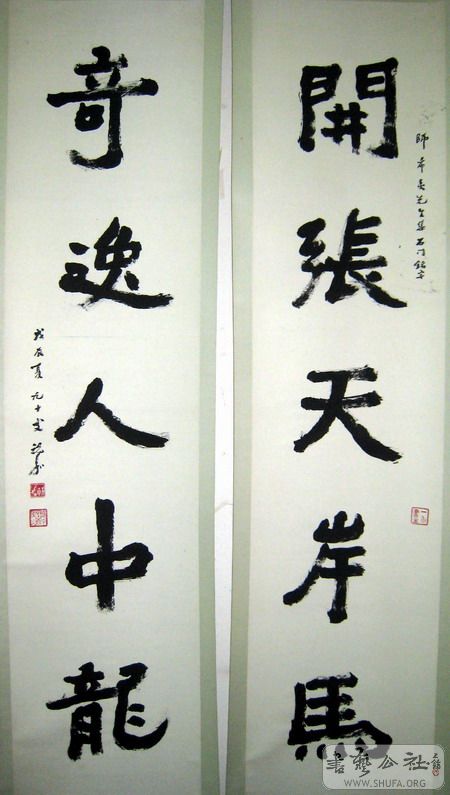 開張天岸馬
師希夷先生集石门銘字
奇逸人中龍
戊辰夏九十叟
書藝公社
WWW.SHUFA.ORG